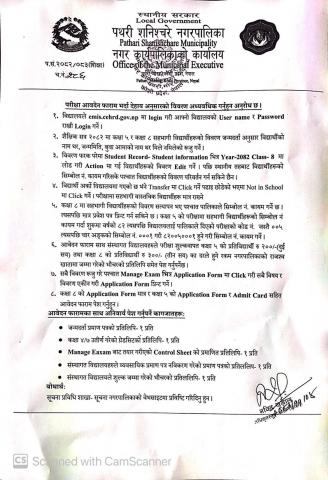 स्थानीय सरकार
Local Government
पथरी शनिश्चरे नगरपालिका
Pathari Shanishchare Municipality
नगर कार्यपालिकाको कार्यालय
Office of the Municipal Executive
प.सं.२०८२/०८३(शिक्षा)
च.नं.
परीक्षा आवेदन फाराम भर्दा देहाय अनुसारको विवरण अध्यावधिक गर्नुहुन अनुरोध छ ।
१. विद्यालयले emis.cehrd.gov.np मा login गरी आफ्नो विद्यालयको User name र Password
राखी Login गर्ने ।
२. शैक्षिक सत्र २०८२ मा कक्षा ५ र कक्षा ८ सहभागी विद्यार्थीहरुको विवरण जन्मदर्ता अनुसार विद्यार्थीको
नाम थर, जन्ममिति, बुवा आमाको नाम थर मिले नमिलेको रुजु गर्ने ।
३. विवरण फरक परेमा Student Record- Student Information भित्र Year-2082 Class- 8 मा
लोड गरी Action मा गई विद्यार्थीहरुको विवरण Edit गर्ने । पछि स्थानीय तहबाट विद्यार्थीहरुको
सिम्बोल नं. कायम गरिसके पश्चात विद्यार्थीहरुको विवरण परिवर्तन गर्न सकिने छैन ।
४. विद्यार्थी अर्को विद्यालयमा गएको छ भने Transfer मा Click गर्ने पढाइ छोडेको भएमा Not in School
मा Click गर्ने । परीक्षामा सहभागी वास्तविक विद्यार्थीहरु मात्र राख्ने
५. कक्षा ८ मा सहभागी विद्यार्थीहरुको विवरण रुजु सम्पन्न भए पश्चात पालिकाले सिम्बोल नं. कायम गर्ने छ ।
त्यसपछि मात्र प्रवेश पत्र प्रिन्ट गर्न सकिने छ । कक्षा ५ को परीक्षामा सहभागी विद्यार्थीहरुको सिम्बोल नं
कायम गर्दा शुरुमा वर्षको ८२ त्यसपछि विद्यालयलाई पालिकाले दिएको परीक्षाको कोड नं. जस्तै ००५
त्यसपछि चार अङ्कको सिम्बोल नं. ०००१ गरी ८२००५०००१ हुने गरी सिम्बोल नं. कायम गर्ने ।
६. आवेदन फाराम साथ संस्थागत विद्यालयहरुले परीक्षा शुल्कबापत कक्षा ५ को प्रतिविद्यार्थी रु २००/-(दुई
सय) तथा कक्षा ८ को प्रतिविद्यार्थी रु ३००/- (तीन सय) का दरले हुने रकम नगरपालिकाको राजश्व
खातामा जम्मा गरेको भौचरको प्रतिलिपि समेत पेश गर्नुपर्नेछ ।
७. सबै विवरण रुजु गरे पश्चात Manage Exam भित्र Application Form मा Click गरी सबै विषय र
विवरण एकीन गरी Application Form प्रिन्ट गर्ने ।
८. कक्षा ८ को Application Form मात्र र कक्षा ५ को Application Form र Admit Card सहित
आवेदन फाराम पेश गर्नुहुन ।
आवेदन फारामका साथ अनिवार्य पेश गर्नुपर्ने कागजातहरु:
• जन्मदर्ता प्रमाण पत्रको प्रतिलिपि- १ प्रति
• कक्षा ४/७ उत्तीर्ण गरेको ग्रेडसिटको प्रतिलिपी- १ प्रति
• Manage Exaxm बाट तयार गरीएको Control Sheet को प्रमाणित प्रतिलिपि- १ प्रति
• संस्थागत विद्यालयहरुले व्यवसायिक प्रमाण पत्र नविकरण गरेको प्रमाण पत्रको प्रतिललिपि- १ प्रति
• संस्थागत विद्यालयले शुल्क जम्मा गरेको भौचरको प्रतिललिपि- १ प्रति
बोधार्थ:
सूचना प्रविधि शाखा- सूचना नगरपालिकाको वेबसाइटमा प्रविष्टि गरिदिनु हुन ।
CS Scanned with CamScanner